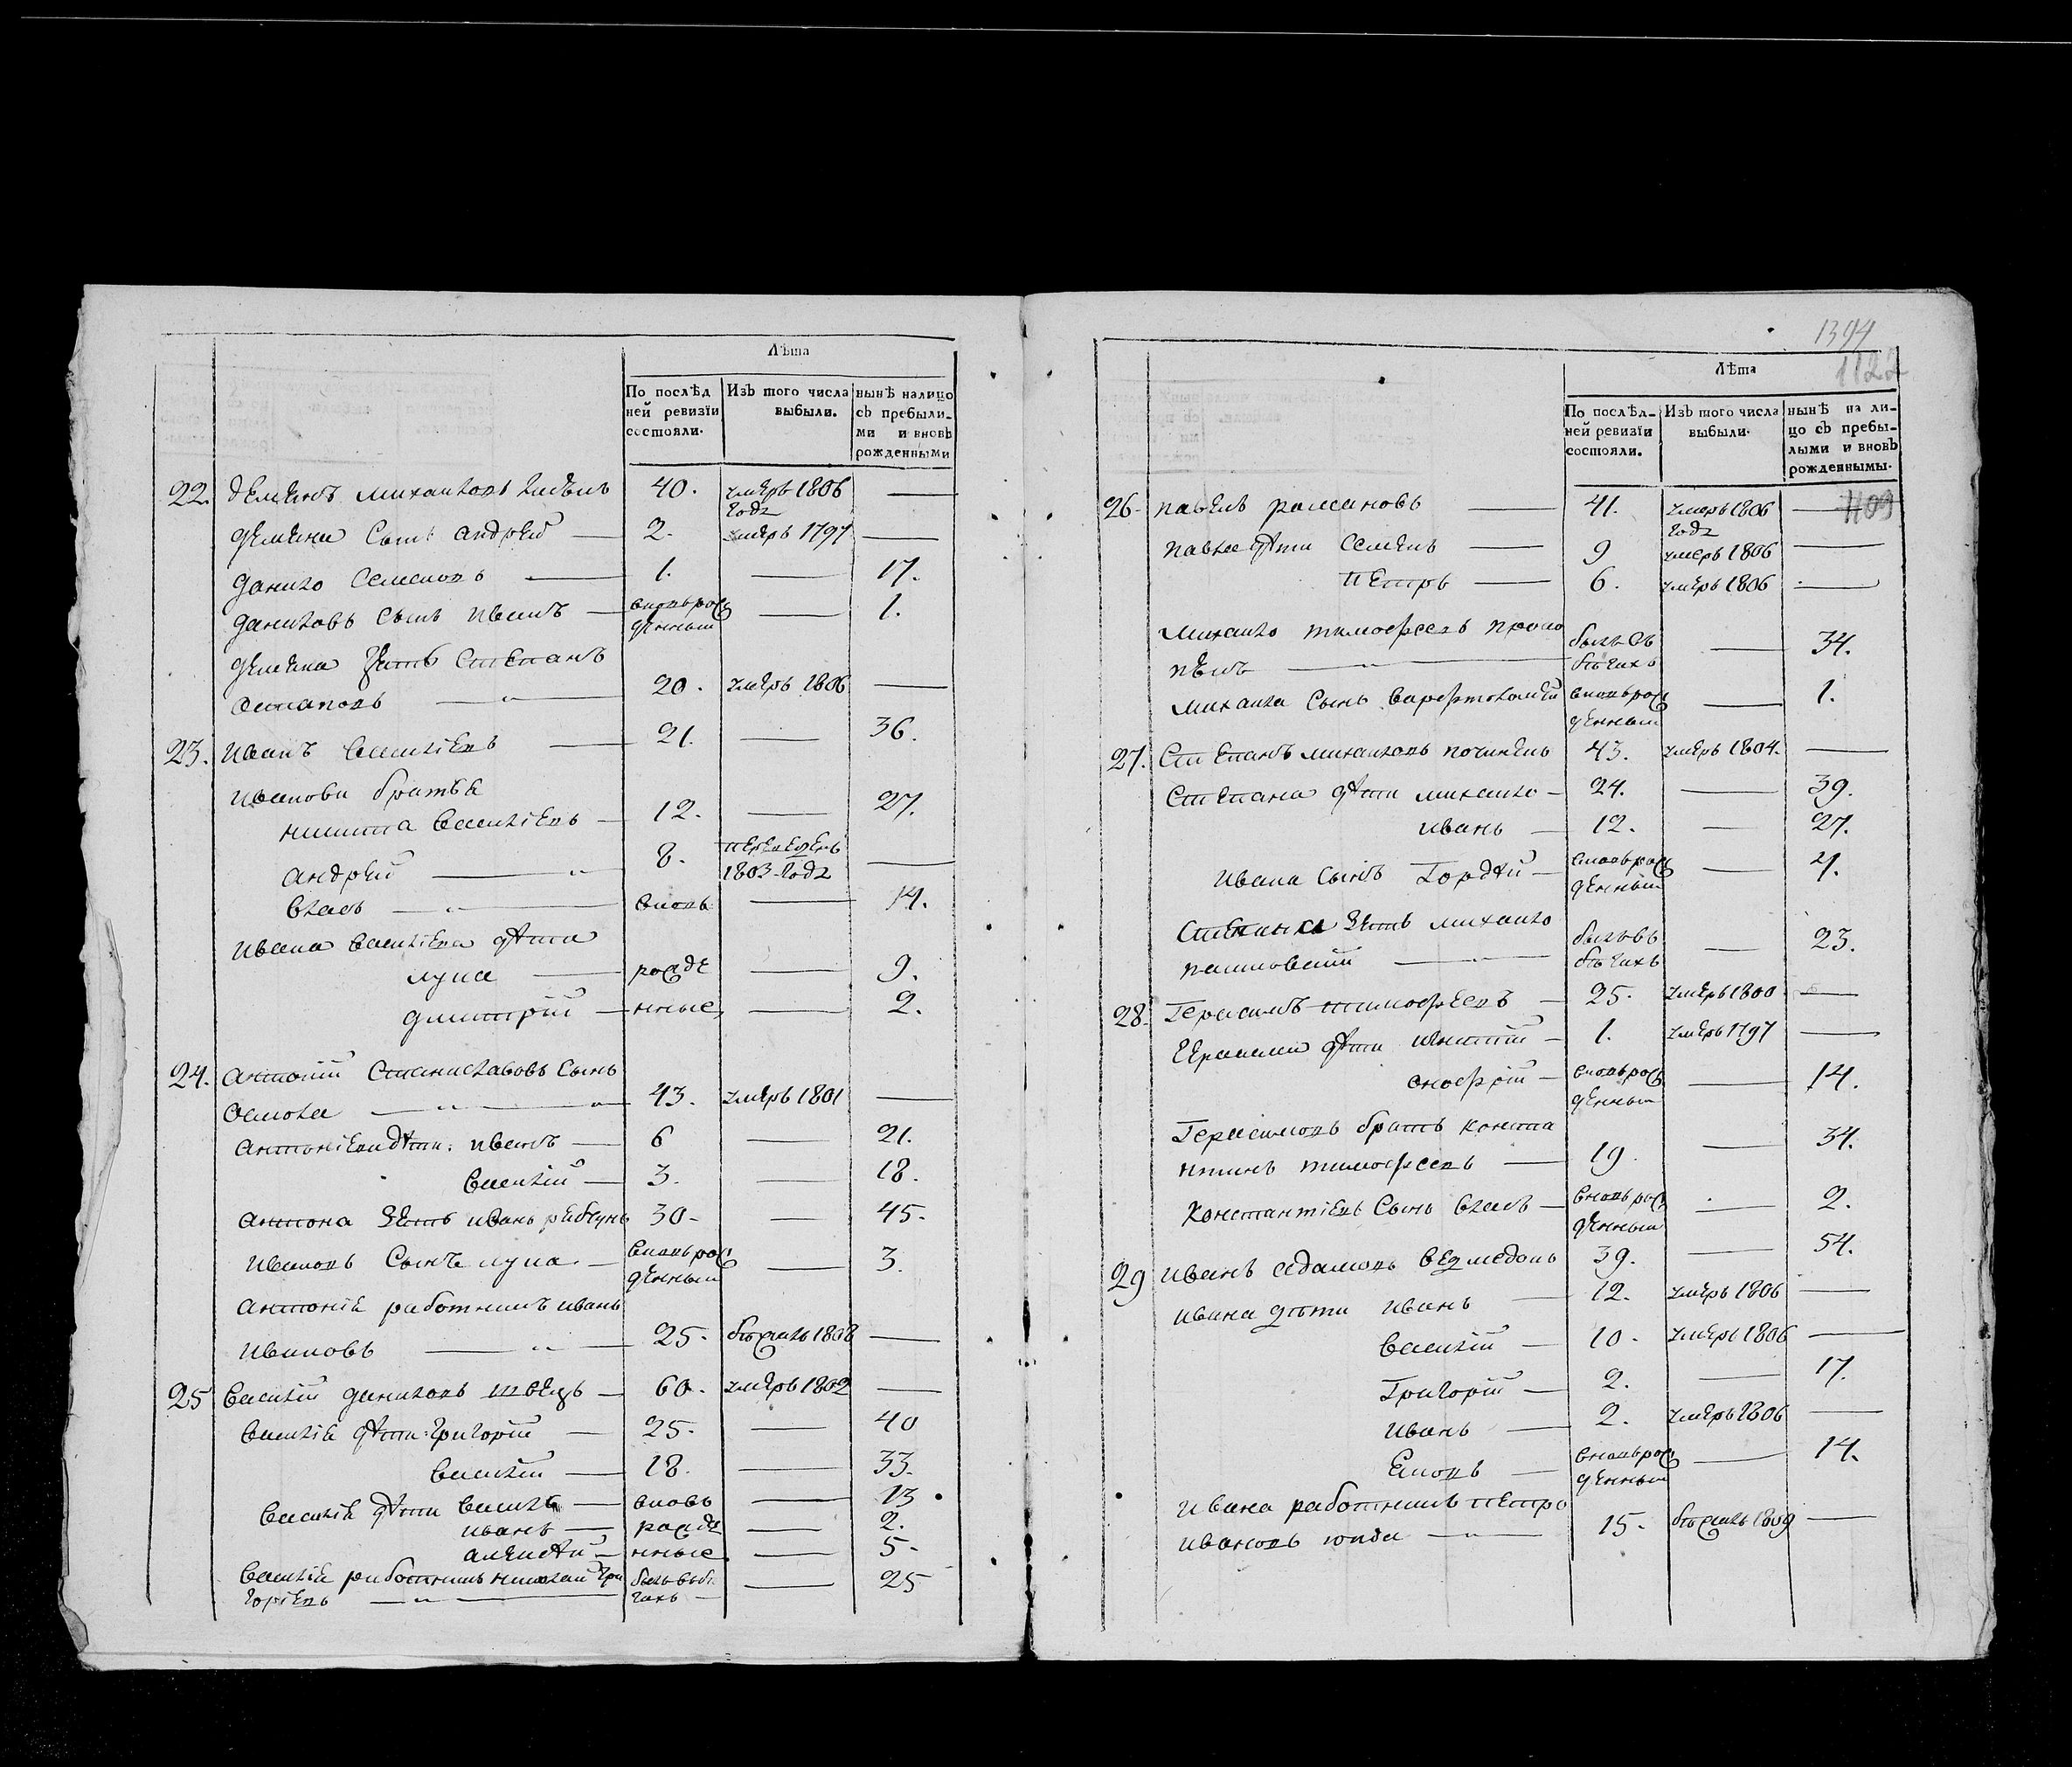 Лѣта
По послѣд
ней ревизїи
состояли.
Изъ того числа
выбыли.
нынѣ налицо
съ пребыли-
ми и вновь
рожденными
22. Деменъ Михайловъ 40. умеръ 1806 —
года
Демена Сынъ Андрей — 2. умеръ 1797 —
Данило Семеновъ — 1. — 17.
Даниловъ Сынъ Иванъ — вновь рож — 1.
денный
Демена Зять Степанъ
— " — 20. умеръ 1806 —
23. Иванъ Васильевъ — 21. — 36.
Ивановы братья
Никита Васильевъ — 12. — 27.
Андрей — " 8. переведенъ —
1803 года
Власъ — " — вновь — 14.
Ивана Васильева дѣти
Лупа — рожде — 9.
Дмитрій — нные — 2.
24. Антоній Станиславовъ Сынъ
— " — " 43. умеръ 1801 —
Антоніевы дѣти: Иванъ — 6 — 21.
Василій — 3. — 18.
Антона Зять Иванъ 30 - — 45.
Ивановъ Сынъ Лупа — вновь рож — 3.
денный
Антонія работникъ Иванъ
Ивановъ — " — 25. бѣжалъ 1808 —
25 Василій Даниловъ Швецъ — 60. умеръ 1802 —
Василія дѣти: Григорій — 25. — 40
Василій — 18. — 33.
Василія дѣти — вновь — 13
Иванъ — рожде — 2.
Алексѣй — нные — 5 -
Василія работникъ Николай Гри былъ въ бѣ — 25
горіевъ — " — гахъ —
1394
1122
Лѣта
По послѣд-
ней ревизїи
состояли.
Изъ того числа
выбыли.
нынѣ на ли-
цо съ пребы-
лыми и вновь
рожденнымы.
1109
26. Павелъ Романовъ — 41. умеръ 1806 —
года
Павла дѣти Семенъ — 9 умеръ 1806 —
Петръ — 6. умеръ 1806 —
Михайло Тимофеевъ былъ въ — 34.
— " — бѣгахъ
Михайла Сынъ Варфтоломѣй вновь рож — 1.
денный
27. Степанъ Михайловъ 43. умеръ 1804. —
Степана дѣти Михайло — 24. — 39.
Иванъ — 12. — 27.
Ивана Сынъ Гордѣй — вновь рож —
денный
Степана Зять Михайло
— " — былъ въ — 23.
бѣгахъ
28. Герасимъ Тимофеевъ — 25. умеръ 1800 —
Герасима дѣти — 1. умеръ 1797 —
Онофрій — вновь рож — 14.
денный
Герасимовъ братъ Конста
нтинъ Тимофеевъ — 19. — 34.
Константіевъ Сынъ Власъ — вновь рож — 2.
денный
29 Иванъ Адамовъ Ведмедовъ 39. — 54.
Ивана дѣти Иванъ — 12. умеръ 1806 —
Василій — 10. умеръ 1806 —
Григорій — 2. — 17.
Иванъ — 2. умеръ 1806 —
— вновь рож — 14.
денный
Ивана работникъ Петро
Ивановъ — " — 15. бѣжалъ 1809 —